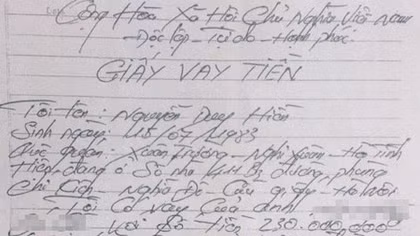 Cộng Hòa Xã Hội Chủ Nghĩa Việt Nam
Độc lập - Tự do - Hạnh phúc
GIẤY VAY TIỀN
Tôi tên: Nguyễn Duy Hiển
Sinh ngày: 15/07/1983
Xuân Trường - Nghi Xuân - Hà Tĩnh
Hiện đang ở Số nhà đường phùng
Chí Kiên - Nghĩa Đô - Cầu giấy - Hà Nội
Tôi Có vay Của anh
Với Số Tiền 230.000.000